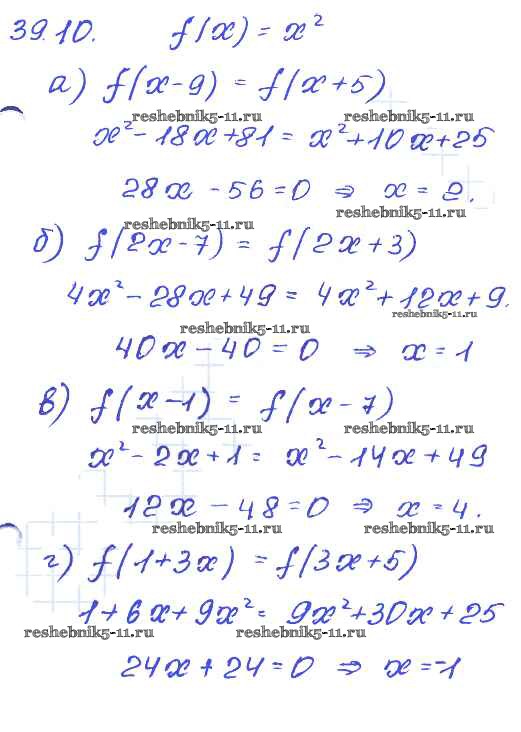 39.10. f(x) = x²
а) f(x-9) = f(x+5)
reshebnik5-11.ru reshebnik5-11.ru
x² - 18x + 81 = x² + 10x + 25
28x - 56 = 0 ⇒ x = 2.
reshebnik5-11.ru
reshebnik5-11.ru
б) f(2x-7) = f(2x+3)
4x² - 28x + 49 = 4x² + 12x + 9.
reshebnik5-11.ru
reshebnik5-11.ru
40x - 40 = 0 ⇒ x = 1
в) f(x-1) = f(x-7)
reshebnik5-11.ru reshebnik5-11.ru
x² - 2x + 1 = x² - 14x + 49
12x - 48 = 0 ⇒ x = 4.
reshebnik5-11.ru reshebnik5-11.ru
г) f(1+3x) = f(3x+5)
1 + 6x + 9x² = 9x² + 30x + 25
reshebnik5-11.ru reshebnik5-11.ru
24x + 24 = 0 ⇒ x = -1